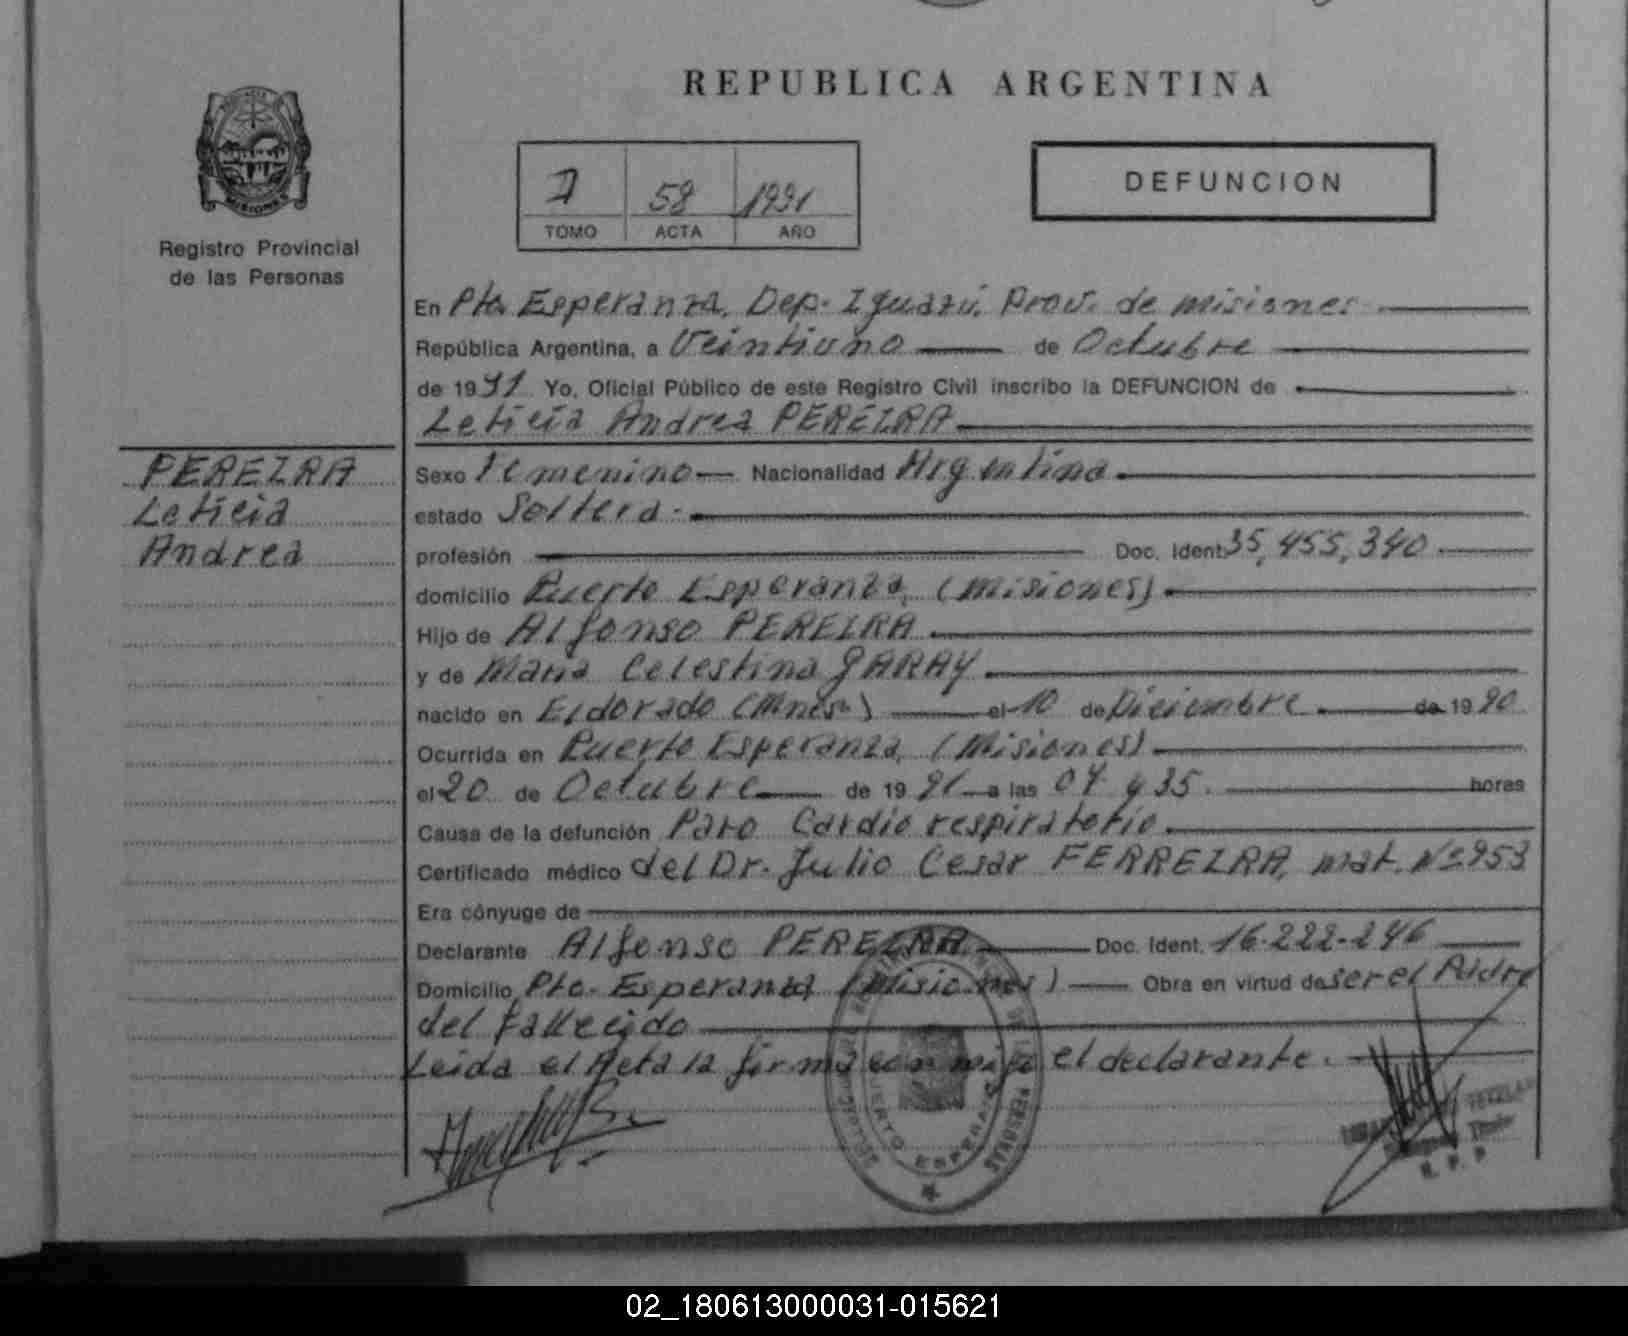 REPUBLICA ARGENTINA
PROVINCIA DE
MISIONES
Registro Provincial
de las Personas
I 58 1991
TOMO ACTA AÑO
DEFUNCION
En Pto. Esperanza, Dep. Iguazú, Prov. de Misiones
República Argentina, a Veintiuno de Octubre
de 1991 Yo, Oficial Público de este Registro Civil inscribo la DEFUNCION de
Leticia Andrea PEREIRA
PEREIRA
Leticia
Andrea
Sexo Femenino Nacionalidad Argentina
estado Soltera.
profesión Doc. Ident. 35,455,340
domicilio Puerto Esperanza, (Misiones)
Hijo de Alfonso PEREIRA
y de Maria Celestina GARAY
nacido en Eldorado (Mnes.) el 10 de Diciembre de 1990
Ocurrida en Puerto Esperanza, (Misiones)
el 20 de Octubre de 1991 a las 07 y 35. horas
Causa de la defunción Paro Cardio respiratorio
Certificado médico del Dr. Julio Cesar FERREIRA, mat. Nº 953
Era cónyuge de
Declarante Alfonso PEREIRA Doc. Ident. 16.222.246
Domicilio Pto. Esperanza (Misiones) Obra en virtud de ser el Padre
del fallecido
Leida el Acta la firma conmigo el declarante.
DE LAS PERSONAS
PUERTO ESPERANZA
R. P. P
02_180613000031-015621